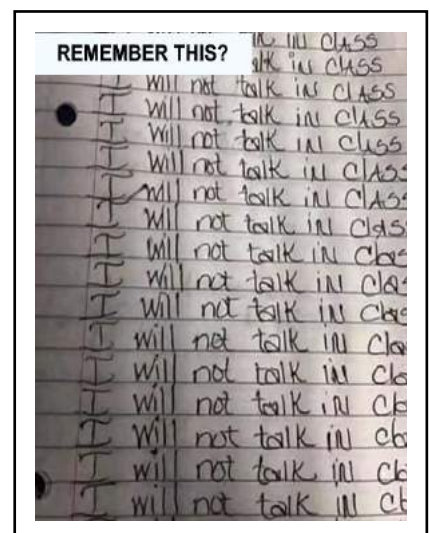 REMEMBER THIS?
in ClASS
in ClASS
I will not talk in ClASS
I will not talk in ClASS
I will not talk in ClASS
I will not talk in ClASS
I will not talk in ClASS
I will not talk in Clas
I will not talk in Clas
I will not talk in Clas
I will not talk in Clas
I will not talk in Cla
I will not talk in Cla
I will not talk in Cla
I will not talk in Cla
I will not talk in Cl
I will not talk in Cl